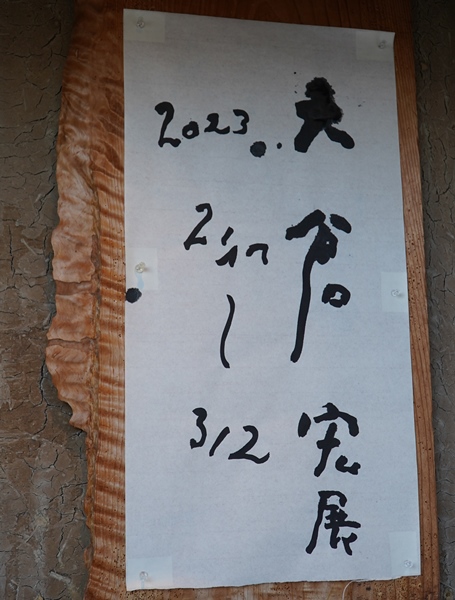 大倉宏展
2023.
2/17
～
3/12